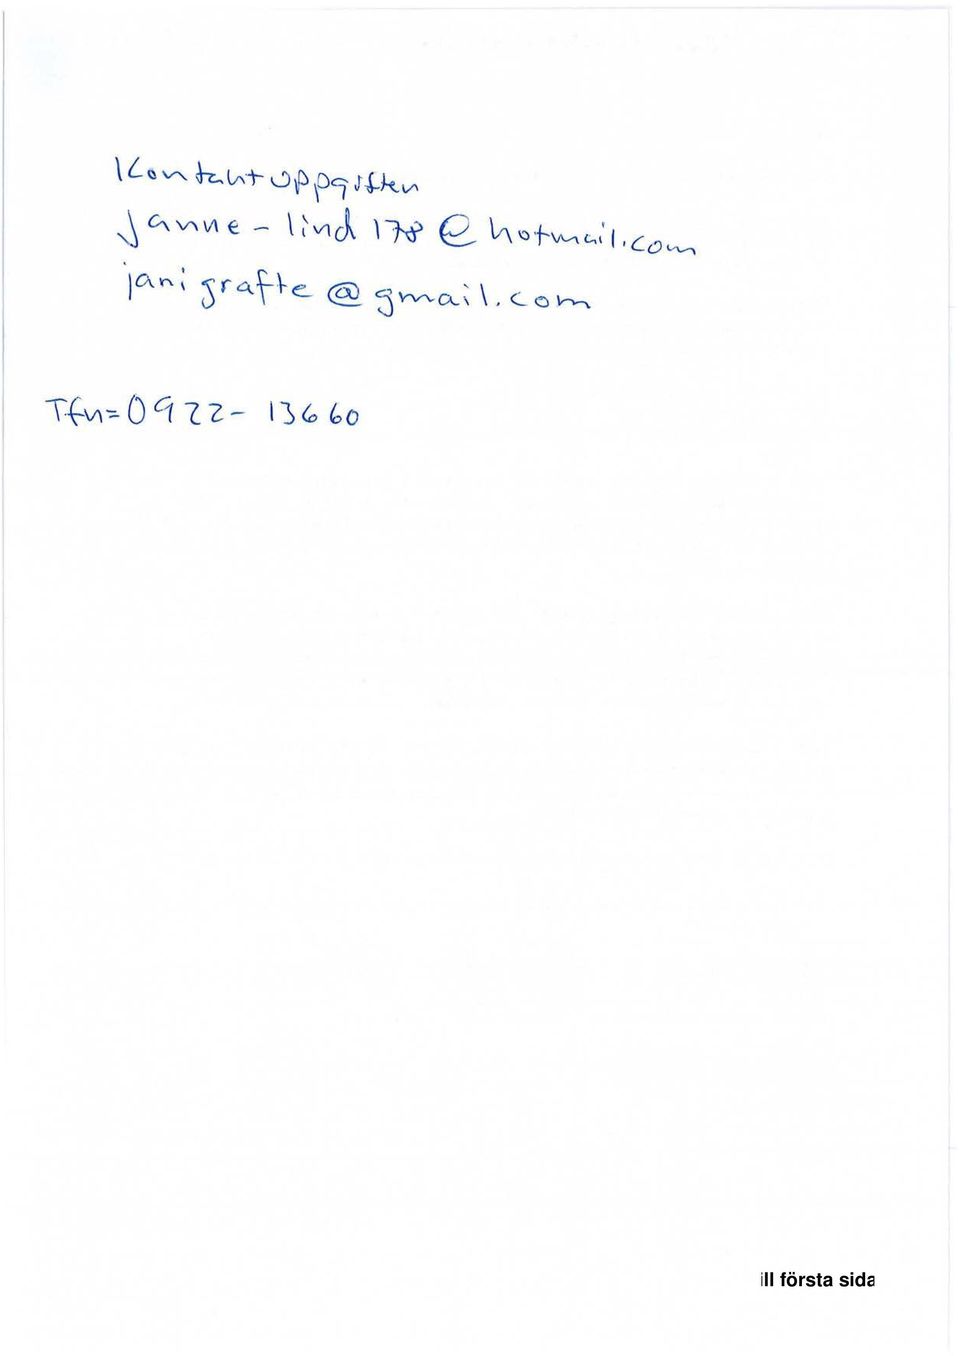 Kontaktuppgiften
Janne - lind 178 @ hotmail.com
janigrafte @ gmail.com
Tfn=0922- 13660
ill första sida